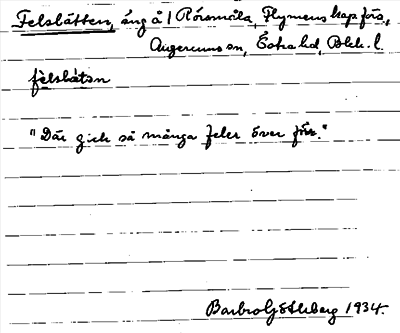 Felslåtten, äng å 1 Rörsmåla, Flymens kapförs.,
Augerums sn, Östra hd, Blek. l.
felslåtən
"Där gick så många feler över förr."
Barbro Götheberg 1934.